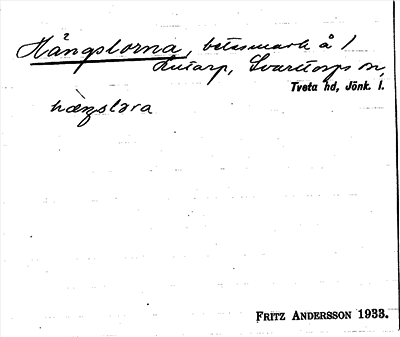 Hängslorna, betesmark å 1
Rutarp, Svarttorps sn,
Tveta hd, Jönk. l.
hæŋslɔra
FRITZ ANDERSSON 1933.